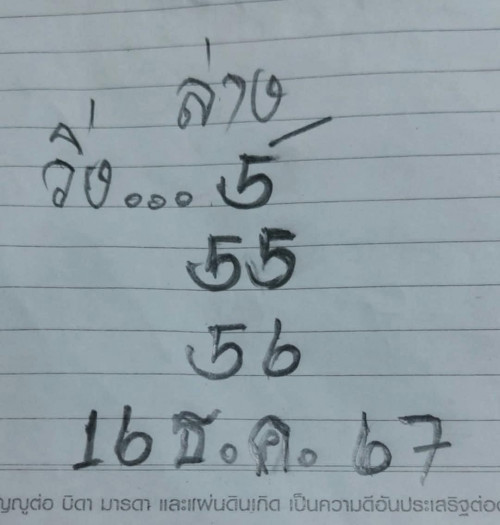 ล่าง
วิ่ง...5
55
56
16 ธ.ค. 67
ญญูต่อ บิดา มารดา และแผ่นดินเกิด เป็นความดีอันประเสริฐต่อ